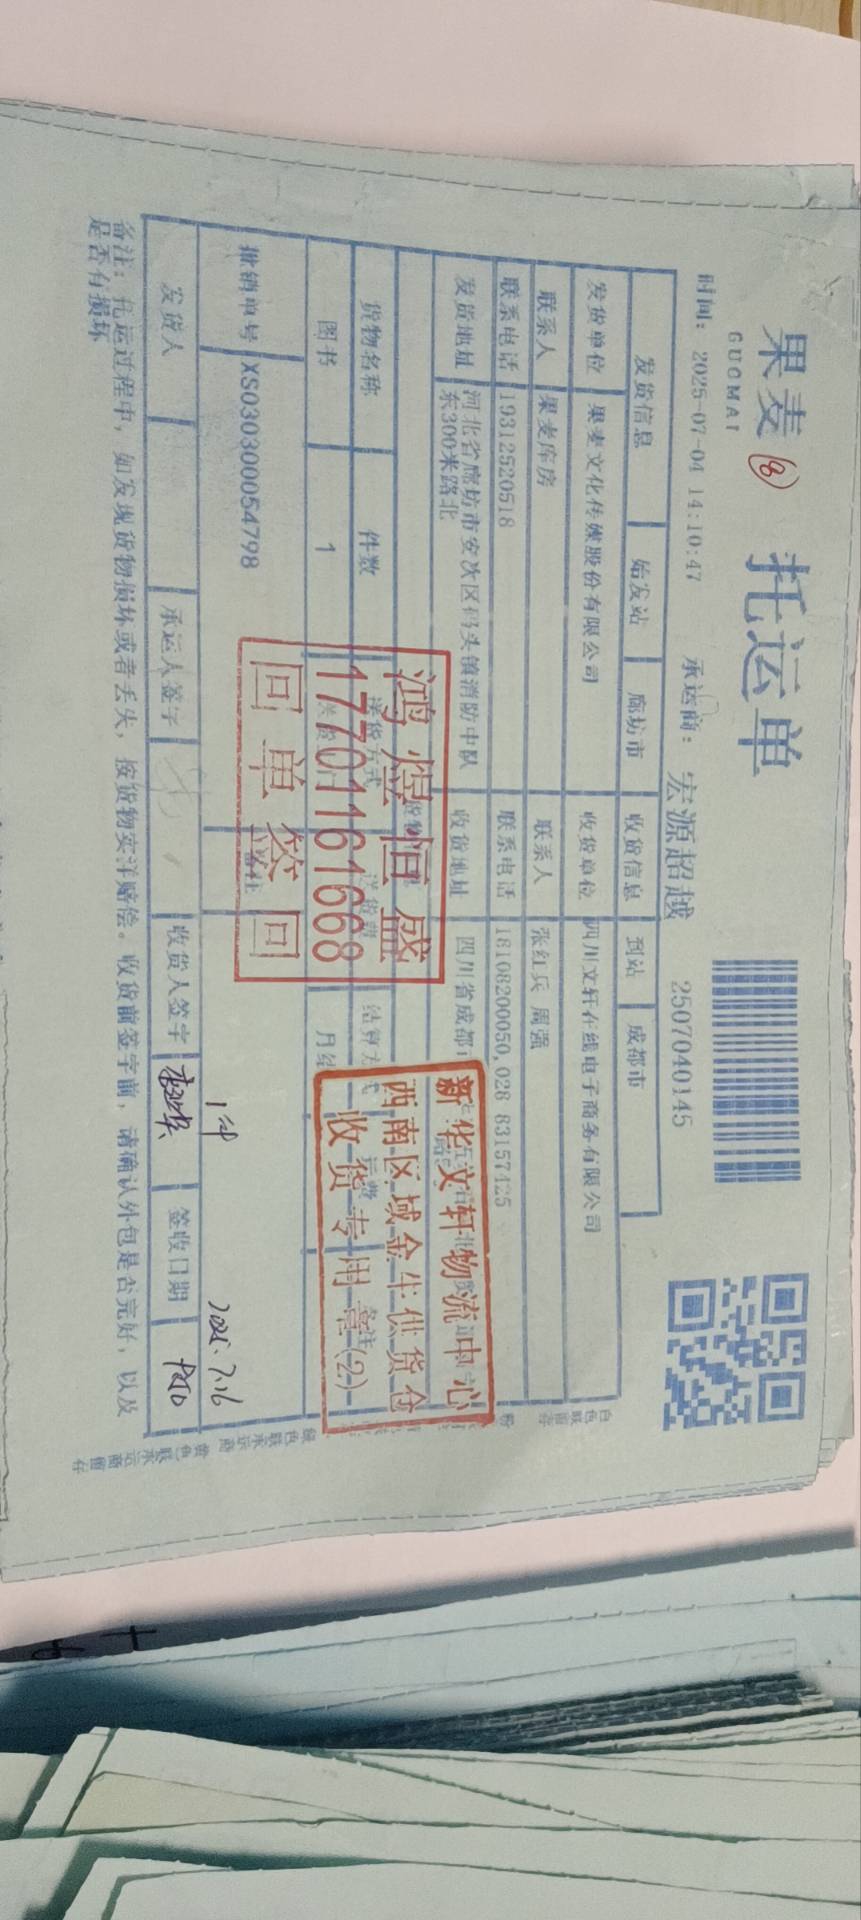 果麦
GUOMAI
⑧
托运单
时间：2025-07-04 14:10:47 承运商：宏源超越 2507040145
发货信息 始发站 廊坊市 收货信息 到站 成都市
发货单位 果麦文化传媒股份有限公司 收货单位 四川文轩在线电子商务有限公司
联系人 果麦库房 联系人 张红兵 周强
联系电话 19312520518 联系电话 18108200050,028 83157425
发货地址 河北省廊坊市安次区码头镇消防中队东300米路北 收货地址 四川省成都市
货物名称 件数 送货方式 送货费 结算方式 运费 备注
图书 1 月结
批销单号 XS030300054798
鸿煜恒盛
17701161668
回单签回
新华文轩物流中心
西南区域金牛供货仓
收货专用章(2)
1件 2025.7.16
发货人 承运人签字 收货人签字 签收日期
备注：托运过程中，如发现货物损坏或者丢失，按货物实洋赔偿。收货前签字前，请确认外包是否完好，以及
是否有损坏
白色联留存
黄色联承运商留存